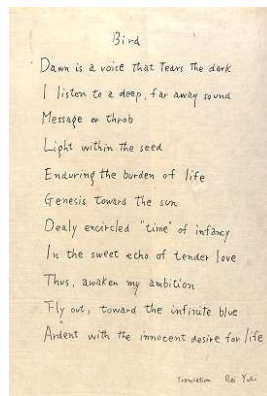 Bird
Dawn is a voice that Tears the dark
I listen to a deep, far away sound
Message or throb
Light within the seed
Enduring the burden of life
Genesis toward the sun
Dealy encircled "time" of infancy
In the sweet echo of tender love
Thus, awaken my ambition
Fly out, toward the infinite blue
Ardent with the innocent desire for life
Translation Rei Yuki